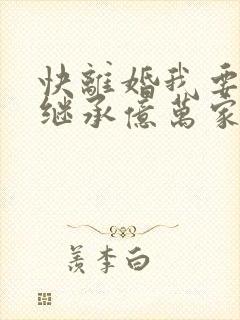 快離婚我要
继承億萬家
羨李白